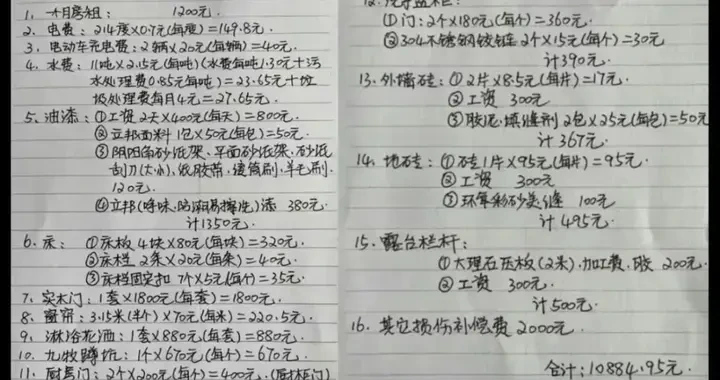 1. 一个月房租: 1200元.
2. 电费: 214度×0.7元(每度)=149.8元.
3. 电动车充电费: 2辆×20元(每辆)=40元.
4. 水费: 11吨×2.15元(每吨)(水费每吨1.30元+污
水处理费0.85元每吨)=23.65元+垃
圾处理费每月4元=27.65元.
5. 油漆: ①工资2天×400元(每天)=800元.
②立邦面料 1包×50元(每包)=50元.
③阴阳角砂纸架、平面砂纸架、砂纸
刮刀(大小)、纸胶带、滚筒刷、羊毛刷.
120元.
④立邦(净味、防潮易擦洗)漆 380元.
计1350元.
6. 床: ①床板 4块×80元(每块)=320元.
②床档 2条×20元(每条)=40元.
③床档固定扣 7个×5元(每个)=35元.
7. 实木门: 1套×1800元(每套)=1800元.
8. 窗帘: 3.15米(半个)×70元(每米)=220.5元.
9. 淋浴花洒: 1套×880元(每套)=880元.
10. 九牧蹲坑: 1个×670元(每个)=670元.
11. 厨房门: 2个×200元(每个)=400元.(厨柜门)
①门: 2个×180元(每个)=360元.
②304不锈钢铰链 2个×15元(每个)=30元
计390元.
13. 外墙砖: ①2片×8.5元(每片)=17元.
②工资 300元
③胶泥、填缝剂 2包×25元(每包)=50元
计367元.
14. 地砖: ①砖1片×95元(每片)=95元.
②工资 300元
③环氧彩砂美缝 100元
计495元.
15. 露台栏杆:
①大理石压板(2米).加工费.胶 200元.
②工资 300元.
计500元.
16. 其它损伤补偿费 2000元.
合计: 10884.95元.